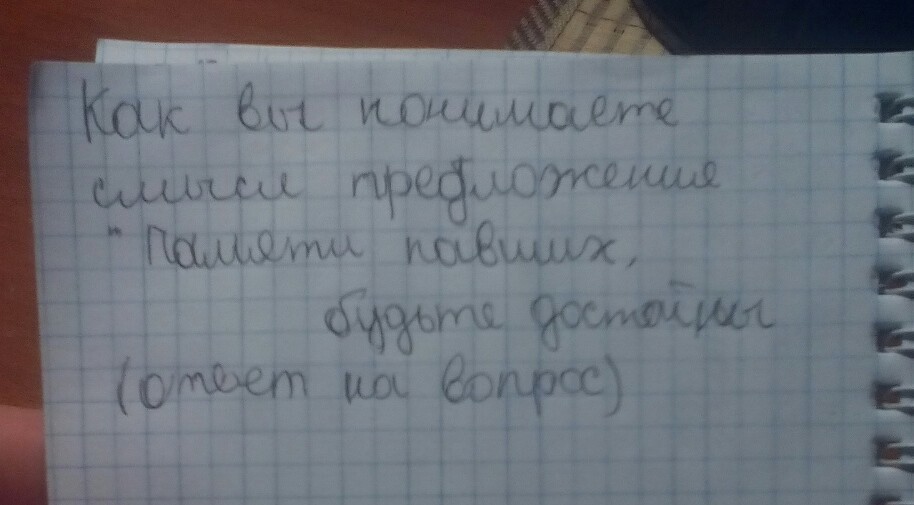 Как вы понимаете
смысл предложения
"Памяти павших,
будьте достойны
(ответ на вопрос)